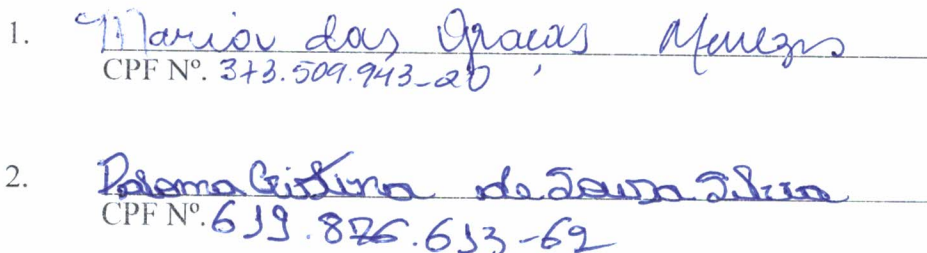 1. Maria das Graças Menezes
CPF Nº. 373.509.943-20
2. Paloma Cristina de Sousa Silva
CPF Nº. 619.876.613-62